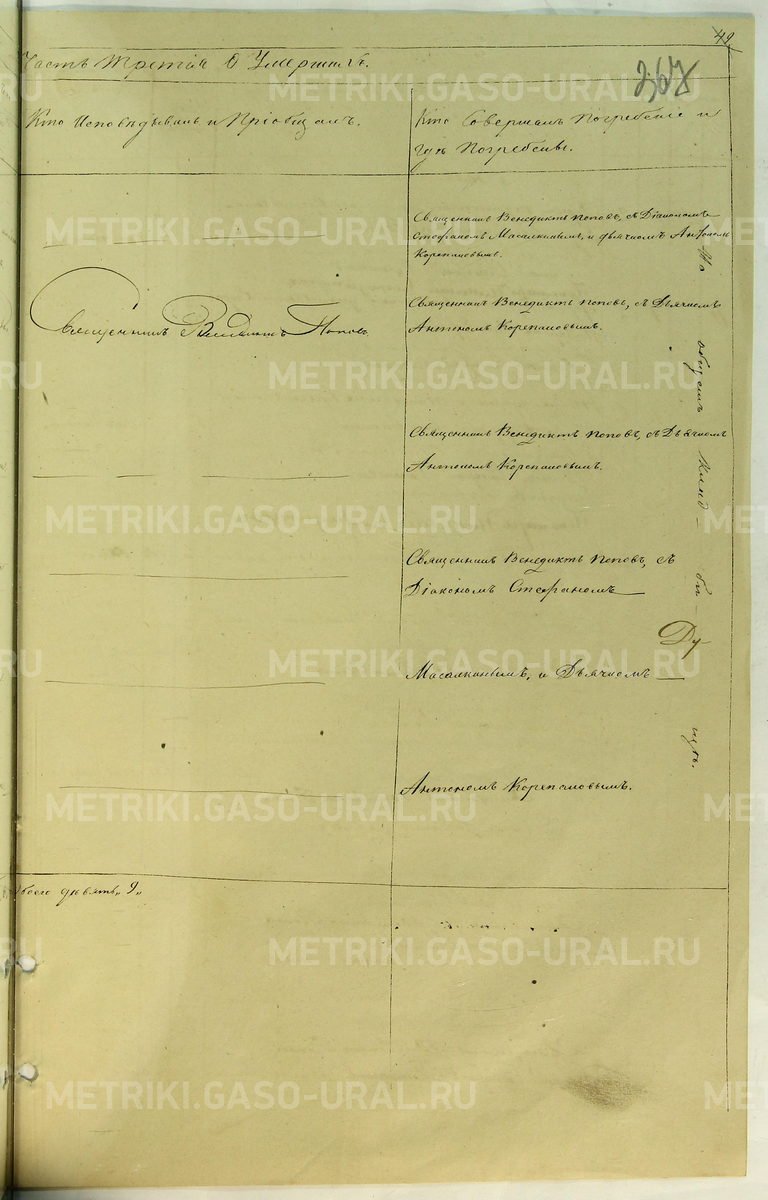 49
367
Часть Третія О Умершихъ.
Кто Исповѣдывалъ и Пріобщалъ.
Кто Совершалъ Погребеніе и
гдѣ Погребены.
Священникъ Венедиктъ Поповъ, съ Діакономъ
Стефаномъ Масалкинымъ, и дьячкомъ Антономъ
Корепановымъ.
Священникъ Венедиктъ Поповъ
Священникъ Венедиктъ Поповъ, съ Дьячкомъ
Антономъ Корепановымъ.
Священникъ Венедиктъ Поповъ, съ Дьячкомъ
Антономъ Корепановымъ.
Священникъ Венедиктъ Поповъ, съ
Діакономъ Стефаномъ
Масалкинымъ, и Дьячкомъ
Антономъ Корепановымъ.
На общемъ кладбищѣ.
Всего девять „9„
METRIKI.GASO-URAL.RU